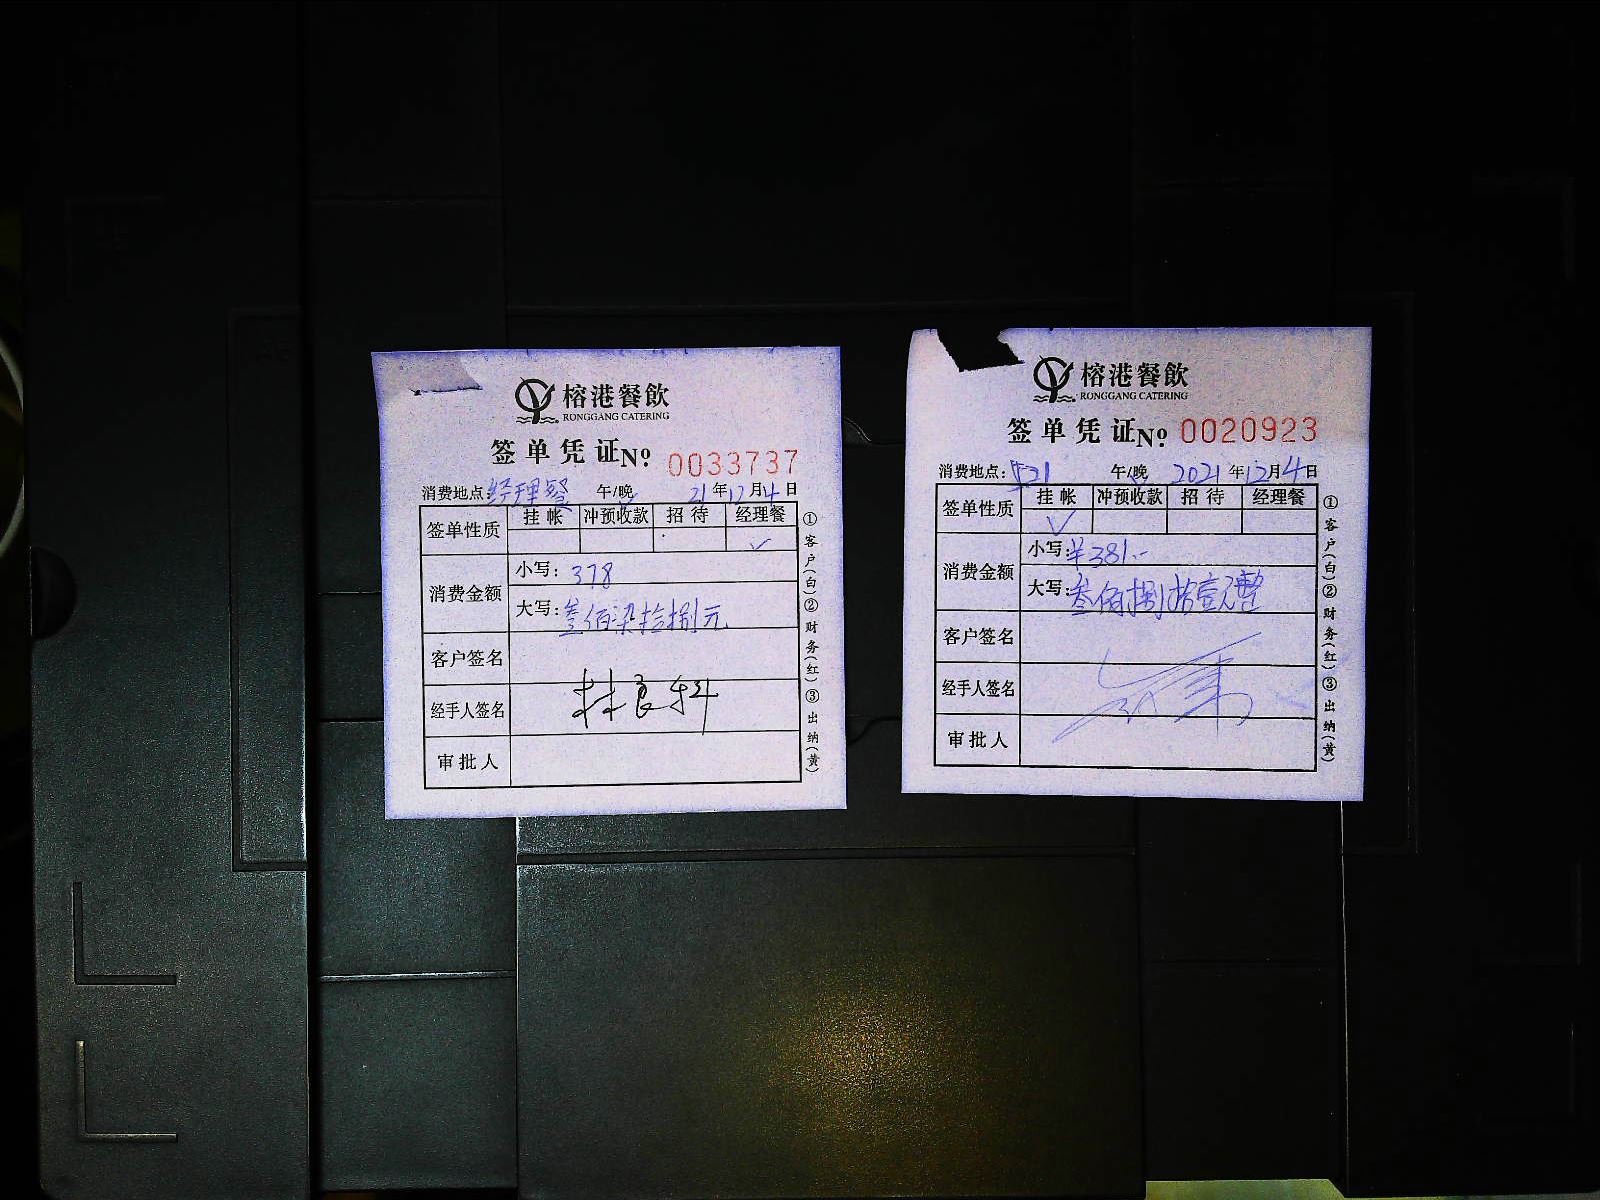 榕港餐飲
RONGGANG CATERING
签单凭证№ 0033737
消费地点:经理餐 午/晚 21年12月4日
签单性质 挂帐 冲预收款 招待 经理餐
✓
消费金额 小写: 378
大写: 叁佰柒拾捌元
客户签名
经手人签名 林良科
审批人
①客户(白)②财务(红)③出纳(黄)
榕港餐飲
RONGGANG CATERING
签单凭证№ 0020923
消费地点: 午/晚 2021年12月4日
签单性质 挂帐 冲预收款 招待 经理餐
✓
消费金额 小写:¥381.-
大写:叁佰捌拾壹元整
客户签名
经手人签名
审批人
①客户(白)②财务(红)③出纳(黄)